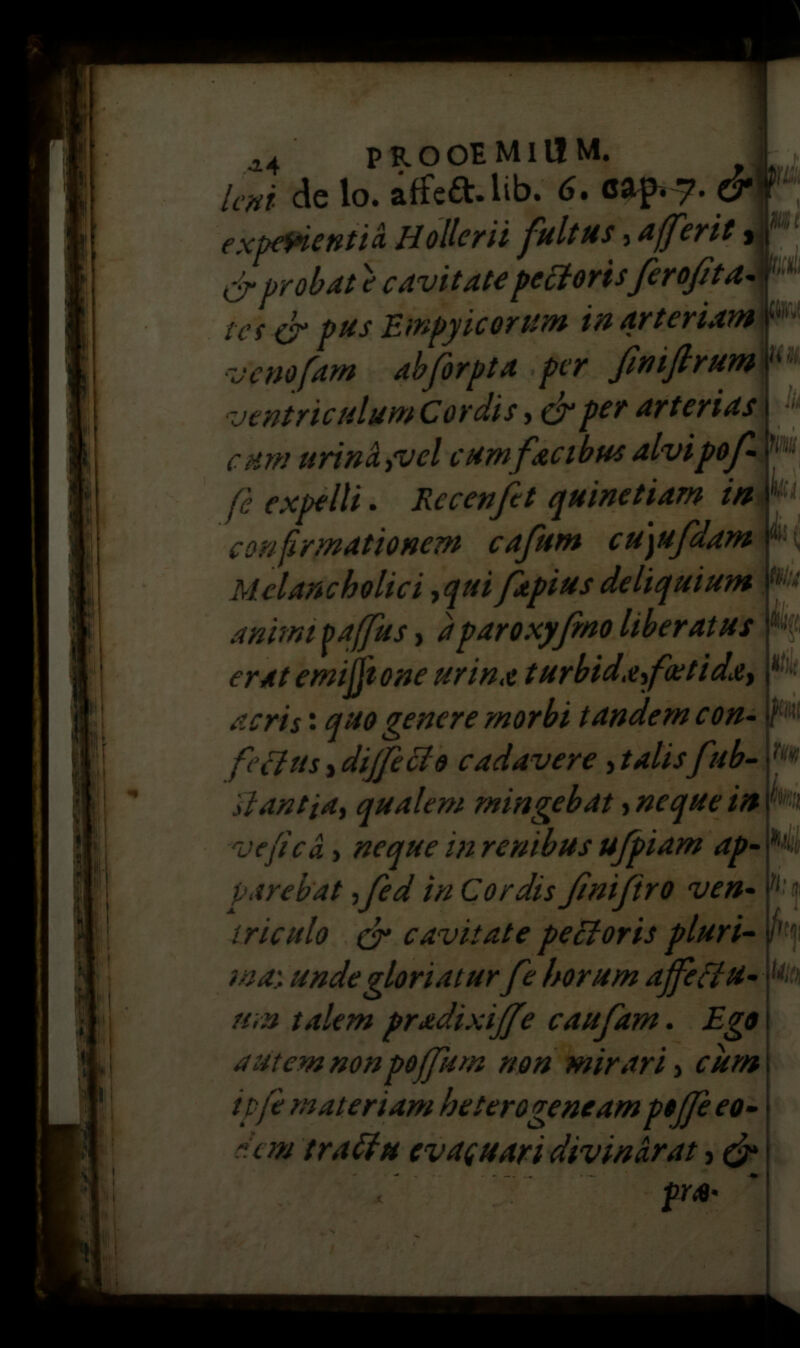 24 PROOEMIUM.
leni de lo. affect. lib. 6. cap. 7. &
expeientiâ Hollerii fultus, asserit,
& probat è cavitate pectoris serosita-
tes & pus Empyicorum in arteriam
venosam absorpta per sinistrum
ventriculum Cordis, & per arterias
cum urinâ, vel cum facibus alvi pos-
sè expelli. Recenset quinetiam in
confirmationem casum cujusdam
Melancholici, qui sæpius deliquium
animi passus, à paroxysmo liberatus
erat emissione urinæ turbidæ, fœtidæ,
acris: quo genere morbi tandem con-
fectus, dissecto cadavere, talis sub-
stantia, qualem mingebat, neque in
vesicâ, neque in renibus uspiam ap-
parebat, sed in Cordis sinistro ven-
triculo & cavitate pectoris pluri-
ma; unde gloriatur se horum affectu-
um talem prædixisse causam. Ego
autem non possum non mirari, cùm
ipse materiam heterogeneam posse eo-
dem tractu evacuari divinârat, &
præ-